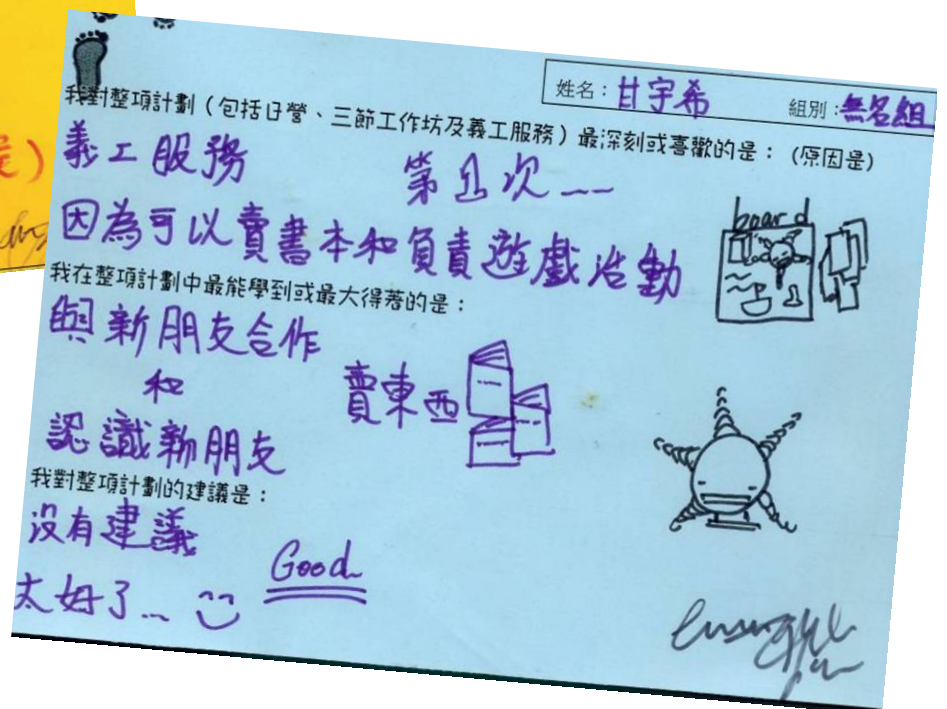 姓名：甘宇希 組別：無名組
我對整項計劃（包括日營、三節工作坊及義工服務）最深刻或喜歡的是：（原因是）
義工服務 第1次...
因為可以賣書本和負責遊戲活動
board
我在整項計劃中最能學到或最大得著的是：
與新朋友合作
和
認識新朋友
賣東西
我對整項計劃的建議是：
沒有建議
太好了...
Good